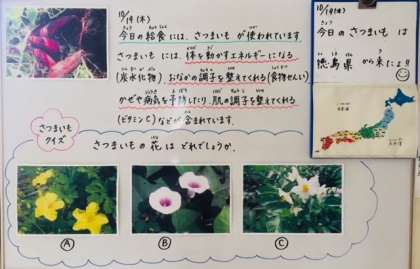 10/19(木)
今日の給食には、さつまいもが使われています
さつまいもには、体を動かすエネルギーになる
(炭水化物)おなかの調子を整えてくれる(食物せんい)
かぜや病気を予防したり、肌の調子を整えてくれる
(ビタミンC)などが含まれています。
さつまいも
クイズ
さつまいもの花はどれでしょうか。
Ⓐ
Ⓑ
Ⓒ
10/19(木)
今日のさつまいもは
徳島県から来たよ!!